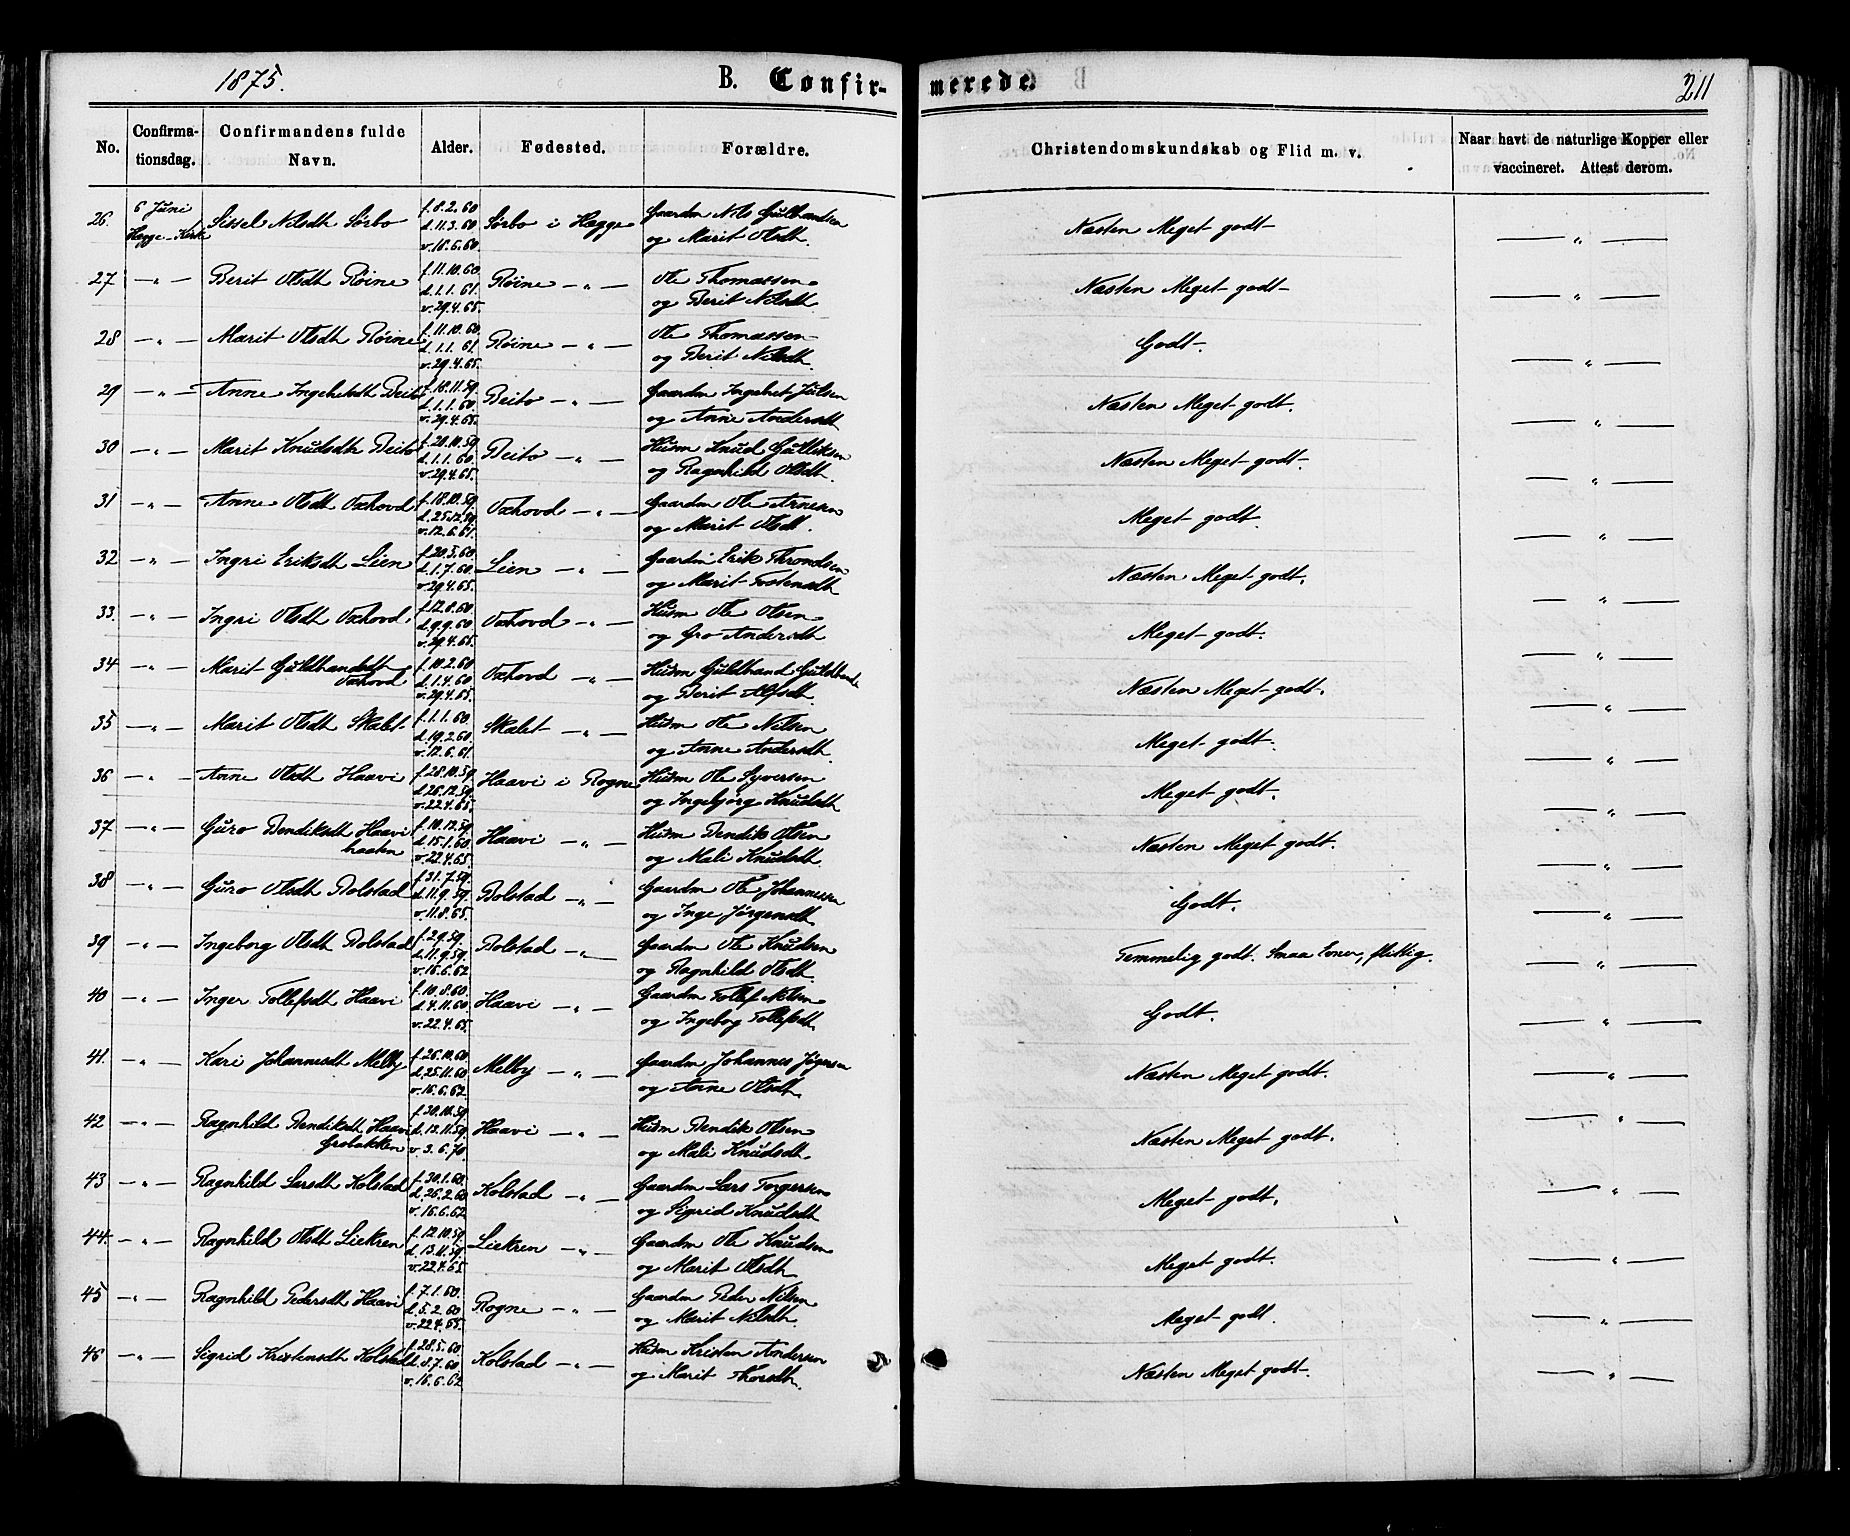 1875.
B. Confir-
merede.
211
No.
Confirma-
tionsdag.
Confirmandens fulde
Navn.
Alder.
Fødested.
Forældre.
Christendomskundskab og Flid m. v.
Naar havt de naturlige Kopper eller
vaccineret. Attest derom.
26. 6 Juni Sissel Nilsdt Sørbo f.8.2.60 Sørbo i Hegge Gaardm Nils Guldbrandsen Næsten Meget godt — „ —
Hegge Kirke d.11.3.60 og Marit Olsdt.
v.18.6.60.
27 — „ — Berit Olsdt Røine f.11.10.60. Røine — „ — Ole Thomassen Næsten Meget godt — „ —
d.1.1.61. og Berit Nilsdt
v.29.4.65.
28 — „ — Marit Olsdt Røine f.11.10.60. Røine — „ — Ole Thomassen Godt. — „ —
d.1.1.61. og Berit Nilsdt
v.29.4.65.
29 — „ — Anne Ingebretsdt Beito f.18.11.59. Beito — „ — Gaardm Ingebret Julsen Næsten Meget godt. — „ —
d.1.1.60. og Anne Andersdt
v.29.4.65.
30 — „ — Marit Knudsdt Beito f.20.10.59. Beito — „ — Husm Knud Gulliksen Næsten Meget godt. — „ —
d.1.1.60. og Ragnhild Olsdt.
v.29.4.65.
31 — „ — Anne Olsdt Oxhovd f.18.10.59. Oxhovd — „ — Gaardm Ole Arnesen Meget godt. — „ —
d.25.12.59. og Marit Olsdt.
v.12.6.61.
32 — „ — Ingri Eriksdt Lien f.20.5.60. Lien — „ — Gaardm Erik Throndsen Næsten Meget godt. — „ —
d.1.7.60. og Marit Tostensdt
v.29.4.65.
33. — „ — Ingri Olsdt Oxhovd f.12.8.60 Oxhovd — „ — Husm Ole Olsen Meget godt. — „ —
d.9.9.60 og Gro Andersdt
v.29.4.65.
34 — „ — Marit Guldbrandsdt f.10.2.60 Oxhovd — „ — Husm Guldbrand Næsten Meget godt. — „ —
Oxhovd d.1.4.60 og Berit Alfsdt.
v.29.4.65.
35 — „ — Marit Olsdt Skalet f.1.1.60. Skalet — „ — Husm Ole Nilsen Meget godt. — „ —
d.19.2.60. og Anne Andersdt.
v.12.6.61.
36 — „ — Anne Olsdt Haavi f.28.10.59. Haavi i Rogne Husm Ole Syversen Meget godt. — „ —
d.26.12.59. og Ingebjørg Knudsdt
v.22.4.65.
37 — „ — Guro Bendiksdt Haavi f.10.12.59. Haavi — „ — Husm Bendik Olsen Næsten Meget godt. — „ —
d.15.1.60. og Mali Knudsdt
v.22.4.65.
38 — „ — Guro Olsdt Bolstad f.31.7.59. Bolstad — „ — Gaardm Ole Johannessen Godt. — „ —
d.11.9.59. og Inge Jørgensdt
v.11.8.65.
39 — „ — Ingeborg Olsdt Bolstad f.2.9.59. Bolstad — „ — Gaardm Ole Knudsen Temmelig godt. Smaa Evner, flittig. — „ —
d.11.9.59. og Ragnhild Olsdt.
v.16.6.62
40 — „ — Inger Tollefsdt Haavi f.10.8.60. Haavi — „ — Gaardm Tollef Nilsen Godt. — „ —
d.4.11.60. og Ingebog Tollefsdt.
v.22.4.65.
41. — „ — Kari Johannesdt Melby f.26.10.60 Melby — „ — Gaardm Johannes Jøgensen Næsten Meget godt. — „ —
d.25.11.60 og Anne Olsdt.
v.16.6.62
42 — „ — Ragnhild Bendiksdt Haavi f.30.10.59. Haavi — „ — Husm Bendik Olsen Næsten Meget godt. — „ —
d.12.11.59. og Mali Knudsdt.
v.3.6.70.
43 — „ — Ragnhild Larsdt Kolstad f.30.1.60. Kolstad — „ — Gaardm Lars Torgersen Meget godt. — „ —
d.26.2.60 og Sigrid Knudsdt
v.16.6.62
44. — „ — Ragnhild Olsdt Liekren f.12.10.59. Liekren — „ — Gaardm Ole Knudsen Meget godt. — „ —
d.13.11.59. og Marit Olsdt
v.22.4.65
45 — „ — Ragnhild Pedersdt Haavi f.7.1.60. Rogne — „ — Gaardm Peder Nilsen Meget godt. — „ —
d.5.2.60 og Marit Nilsdt.
v.22.4.65.
46 — „ — Sigrid Kristensdt Kolstad f.28.5.60 Kolstad — „ — Husm Kristen Andersen Næsten Meget godt. — „ —
d.8.7.60 og Marit Thorsdt.
v.16.6.62